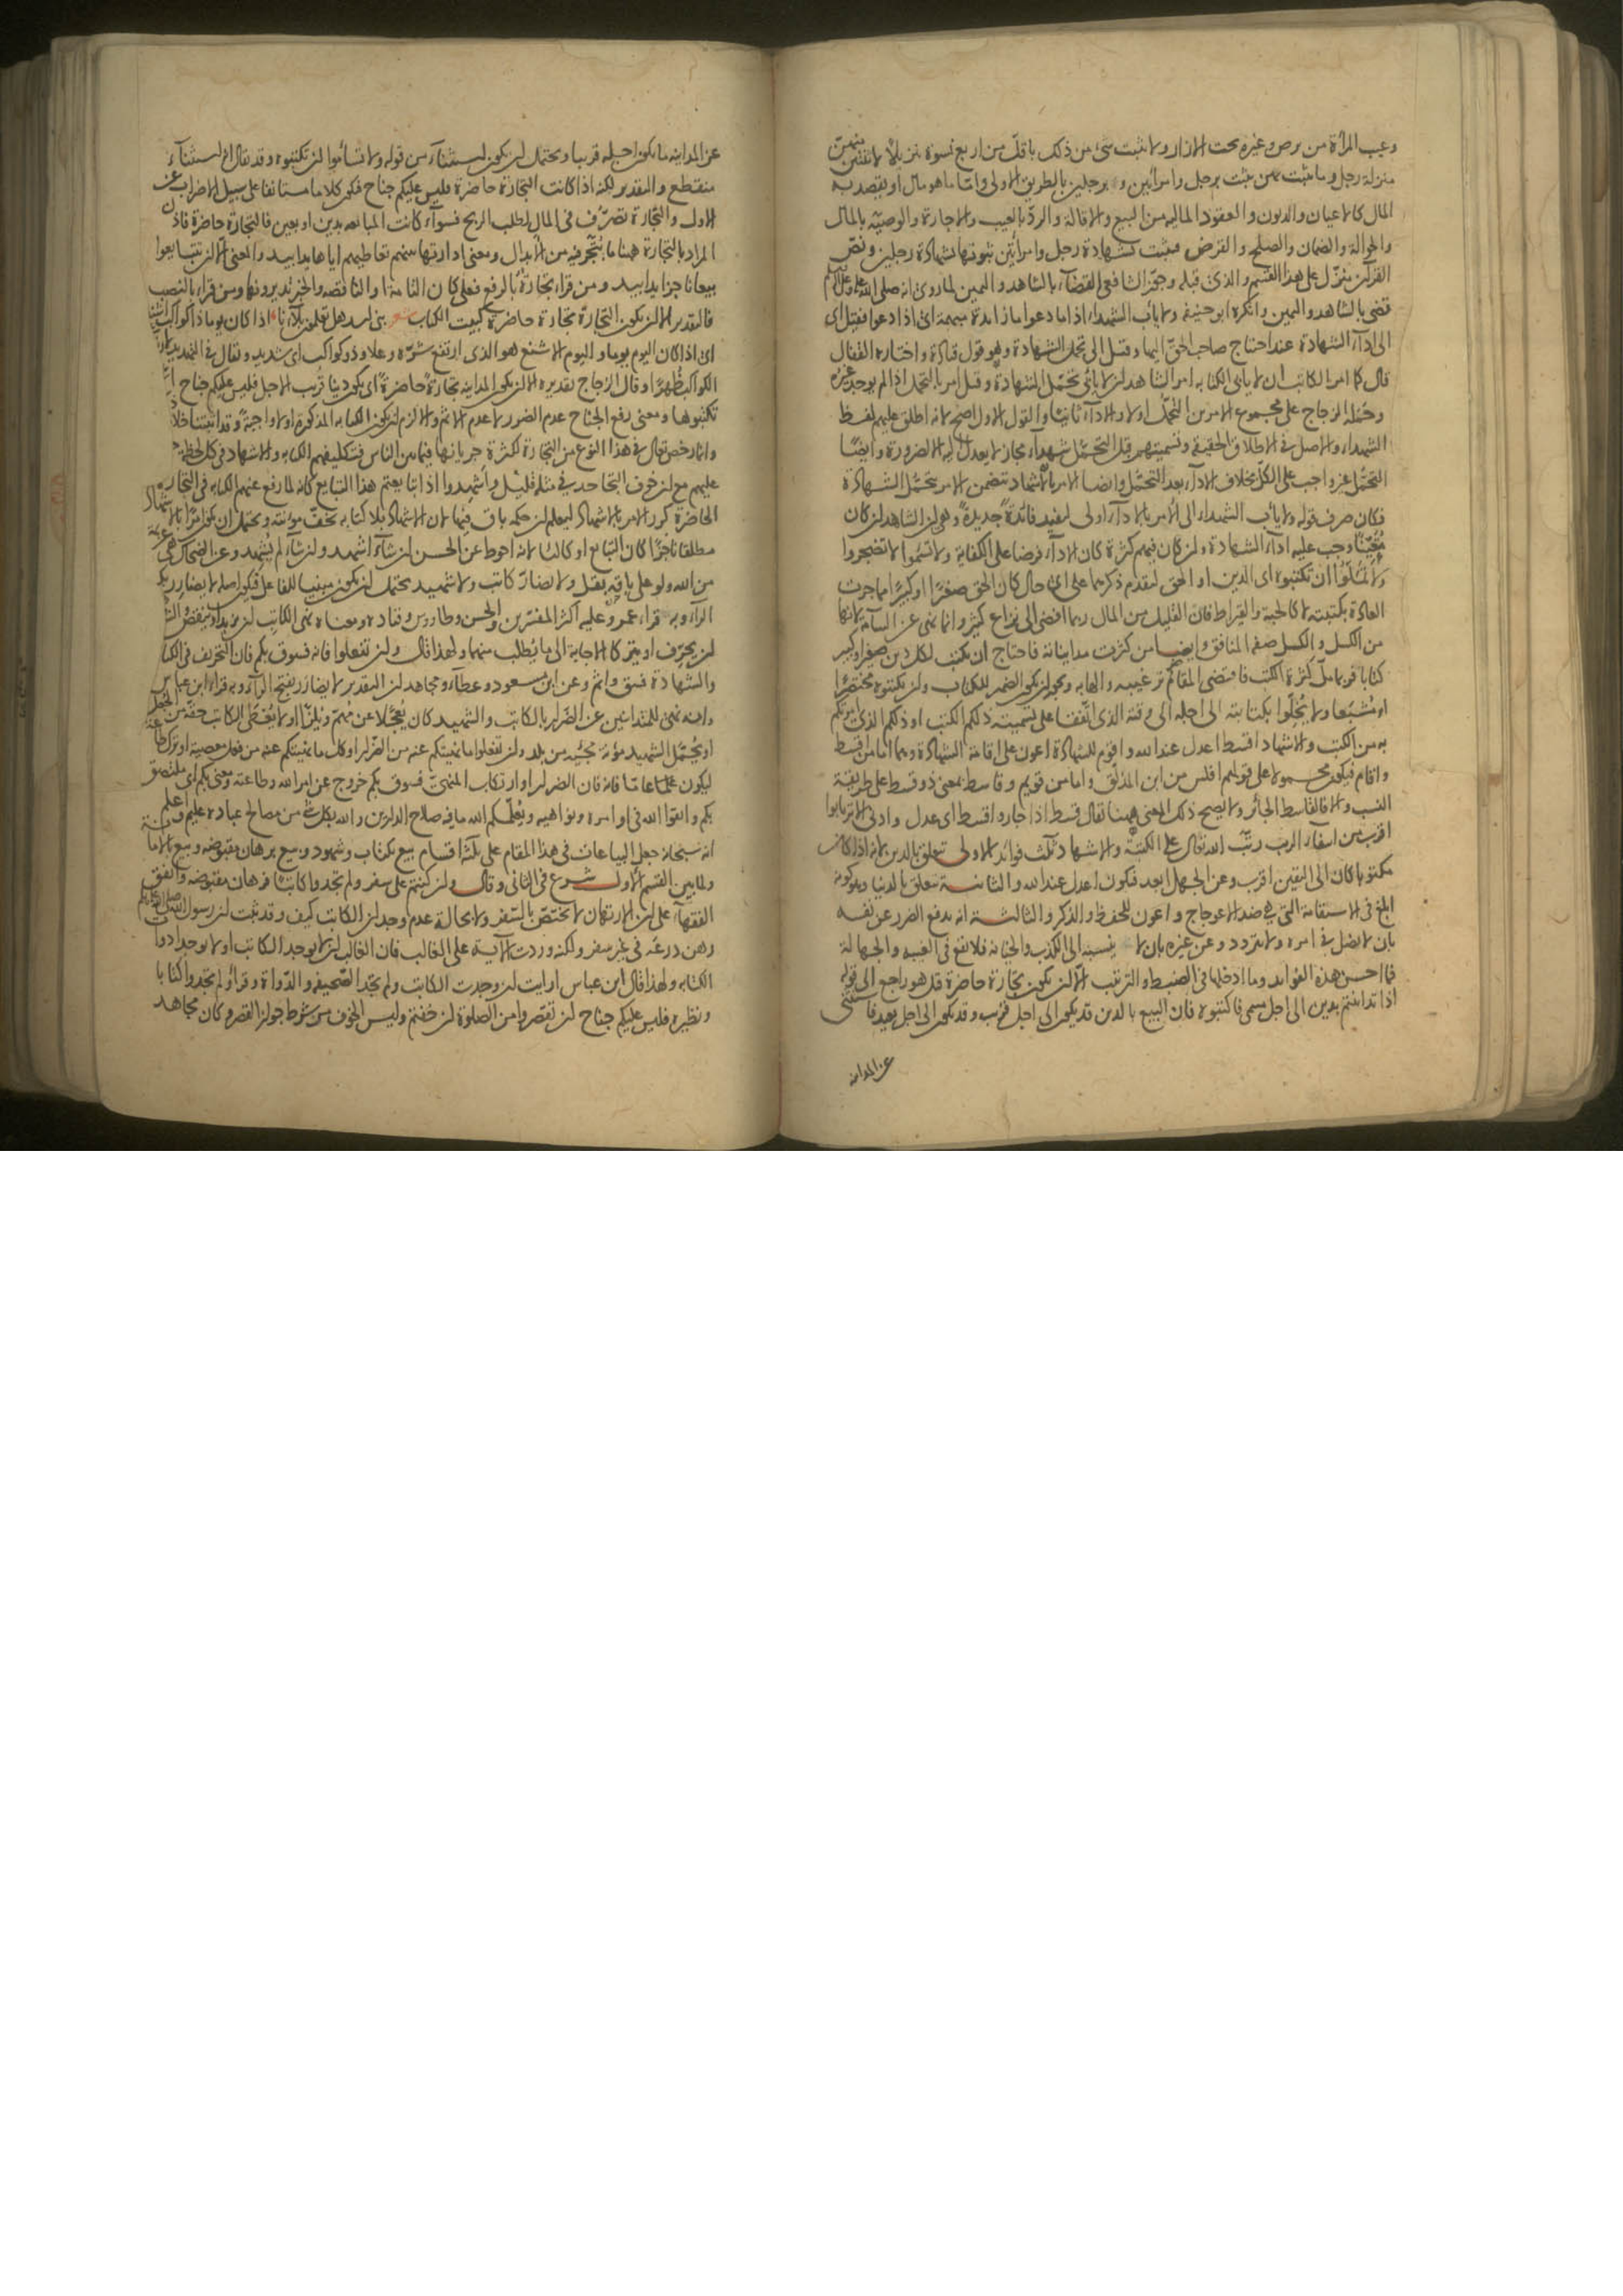 وعيب المرأة من برص وغيره تحت الازار ولا يثبت شئ من ذلك باقل من اربع نسوة تنزيلا لاثنتين منهن
منزلة رجل وما يثبت بهن يثبت برجل وامرأتين و برجلين بالطريق الاولى واما ما هو مال او يقصد به
المال كالاعيان والديون والعقود المالية من البيع والاقالة والرد بالعيب والاجارة والوصية بالمال
والحوالة والضمان والصلح والقرض فيثبت بشهادة رجل وامرأتين ثبوتها بشهادة رجلين ونص
القرآن منزل على هذا القسم والذى قبله وجوز الشافعى القضاء بالشاهد واليمين لما روى انه صلى الله عليه وسلم
قضى بالشاهد واليمين وانكره ابو حنيفة ولا يأب الشهداء اذا ما دعوا ما زائدة مبهمة اى اذا دعوا فقيل اى
الى اداء الشهادة عند احتاج صاحب الحق اليها وقيل الى تحمل الشهادة وهو قول قتادة واختاره القفال
قال كما امر الكاتب ان لا يابى الكتابة امر الشاهد ان لا يأبى تحمل الشهادة وقيل امر بالتحمل اذا لم يوجد غيره
وحمله الزجاج على مجموع الامرين التحمل اولا والاداء ثانيا والقول الاول اصح لانه اطلق عليهم لفظ
الشهداء والاصل فى الاطلاق الحقيقة وتسميتهم قبل التحمل شهداء مجاز لا يعدل اليه الا لضرورة وايضا
التحمل غير واجب على الكل بخلاف الاداء بعد التحمل وايضا الامر بالاشهاد يتضمن الامر بتحمل الشهادة
فكان صرف قوله ولا يأب الشهداء الى الامر بالاداء اولى ليفيد فائدة جديدة وهى ان الشاهد ان كان
متعينا وجب عليه اداء الشهادة وان كان فيهم كثرة كان الاداء فرضا على الكفاية ولا تسأموا لا تضجروا
ولا تملوا ان تكتبوه اى الدين او الحق لتقدم ذكرهما على اى حال كان الحق صغيرا او كبيرا مما جرت
العادة بكتبته لا كالحبة والقيراط فان القليل من المال ربما افضى الى نزاع كثير وانما نهى عن السآمة لانها
من الكسل والكسل صفة المنافق وايضا من كثرت مدايناته فاحتاج ان يكتب لكل دين صغير او كبير
كتابا فربما مل كثرة الكتب فاقتضى المقام ترغيبه والهابه ويجوز ان يكون الضمير للكتاب وان يكتبوه مختصرا
او مشبعا ولا يخلوا بكتابته الى اجله الى وقته الذى اتفقا على تسميته ذلكم الكتب او ذلكم الذى امرتكم
به من الكتب والاشهاد اقسط اعدل عند الله واقوم للشهادة اعون على اقامة الشهادة وهما اما من اقسط
واقام فيكون محمولا على قولهم افلس من ابن المذلق واما من قويم وقاسط بمعنى ذو قسط على طريقة
النسب والا فالقاسط الجائر ولا يصح ذلك المعنى ههنا يقال قسط اذا جار واقسط اى عدل وادنى الا ترتابوا
اقرب من انتفاء الريب رتب الله تعالى على الكتبة والاشهاد ثلث فوائد الاولى تتعلق بالدين لانه اذا كان
مكتوبا كان الى اليقين اقرب وعن الجهل ابعد فيكون اعدل عند الله والثانية تتعلق بالدنيا وهو كونه
ابلغ فى الاستقامة التى هى ضد الاعوجاج واعون للحفظ والذكر والثالثة انه يدفع الضرر عن نفسه
بان لا يضل فى امره ولا يتردد وعن غيره بان لا ينسبه الى الكذب والخيانة فلا يقع فى الغيبة والجهالة
فما احسن هذه الفوائد وما ادخلها فى الضبط والترتيب الا ان تكون تجارة حاضرة قيل هو راجع الى قوله
اذا تداينتم بدين الى اجل مسمى فاكتبوه فان البيع بالدين قد يكون الى اجل قريب وقد يكون الى اجل بعيد فاستثنى
عن المداينة
عن المداينة ما يكون اجله قريبا ويحتمل ان يكون استثناء من قوله ولا تسأموا ان تكتبوه وقد يقال انه استثناء
منقطع والتقدير لكنه اذا كانت التجارة حاضرة فليس عليكم جناح فيكون كلاما مستأنفا على سبيل الاضراب عن
الاول والتجارة تصرف فى المال لطلب الربح فسواء كانت المبايعة بدين او بعين فالتجارة حاضرة فاذن
المراد بالتجارة ههنا ما يتجر فيه من الابدال ومعنى ادارتها بينهم تعاطيهم اياها يدا بيد والمعنى الا ان تتبايعوا
بيعا ناجزا يدا بيد ومن قرأ تجارة بالرفع فعلى كان التامة او الناقصة والخبر تديرونها ومن قرأ بالنصب
فالتقدير الا ان تكون التجارة تجارة حاضرة كبيت الكتاب بنى اسد هل تعلمون بلاءنا اذا كان يوما ذا كواكب اشنعا
اى اذا كان اليوم يوما واليوم الاشنع هو الذى ارتفع شره وعلا وذو كواكب اى شديد ويقال فى التهديد
الكواكب ظهرا وقال الزجاج تقديره الا ان تكون المداينة تجارة حاضرة اى يكون دينا قريب الاجل فليس عليكم جناح
تكتبوها ومعنى رفع الجناح عدم الضرر لا عدم الاثم والا لزم ان تكون الكتابة المذكورة اولا واجبة وقد اثبتنا خلافه
وانما رخص تعالى فى هذا النوع من التجارة لكثرة جريانها فيما بين الناس فتكليفهم الكتابة والاشهاد فى كل لحظة
عليهم مع ان خوف التجاحد فى مثله قليل واشهدوا اذا تبايعتم هذا التبايع كانه لما رفع عنهم الكتابة فى التجارة
الحاضرة كرر الامر بالاشهاد ليعلم ان حكمه باق فيها لان الاشهاد بلا كتابة تخف مؤنته ويحتمل ان يكون امرا بالاشهاد
مطلقا ناجزا كان التبايع او كالئا لانه احوط عن الحسن ان شاء اشهد وان شاء لم يشهد وعن الضحاك هى عزيمة
من الله ولو على باقة بقل ولا يضار كاتب ولا شهيد يحتمل ان يكون مبنيا للفاعل فيكون اصله لا يضارر بكسر
الراء وبه قرأ عمر وعليه اكثر المفسرين والحسن وطاووس وقتادة ومعناه نهى الكاتب ان يزيد او ينقص
ان يحرف او يترك الاجابة الى ما يطلب منهما ولهذا قال وان تفعلوا فانه فسوق بكم فان التحريف فى الكتابة
والشهادة فسق واثم وعن ابن مسعود وعطاء ومجاهد ان التقدير لا يضارر بفتح الراء وبه قرأ ابن عباس
وانه نهى للمتداينين عن الضرار بالكاتب والشهيد كان يعجلا عن مهم ويلزا او لا يعطى الكاتب حقه من الجعل
او يحمل الشهيد مؤنة مجيئه من بلد وان تفعلوا ما نهيتكم عنه من الضرار او كل ما نهيتكم عنه من فعل معصية او ترك طاعة
ليكون عاما فانه فان الضرار او ارتكاب المنهى فسوق بكم خروج عن امر الله وطاعته ومعنى بكم اى ملتصق
بكم واتقوا الله فى اوامره ونواهيه ويعلمكم الله ما فيه صلاح الدارين والله بكل شئ من مصالح عباده عليم واعلم
انه سبحانه جعل البياعات فى هذا المقام على ثلثة اقسام بيع بكتاب وشهود وبيع برهان مقبوضة وبيع الامانة
ولما بين القسم الاول شرع فى الثانى وقال وان كنتم على سفر ولم تجدوا كاتبا فرهان مقبوضة واتفق
الفقهاء على ان الارتهان لا يختص بالسفر ولا بحالة عدم وجدان الكاتب كيف وقد ثبت ان رسول الله صلى الله عليه وسلم
رهن درعه فى غير سفر ولكنه وردت الآية على الغالب فان الغالب ان لا يوجد الكاتب او لا يوجد ادوات
الكتابة ولهذا قال ابن عباس ارايت ان وجدت الكاتب ولم تجد الصحيفة والدواة وقرأ ولم تجدوا كتابا
ونظيره فليس عليكم جناح ان تقصروا من الصلوة ان خفتم وليس الخوف من شرط جواز القصر وكان مجاهد